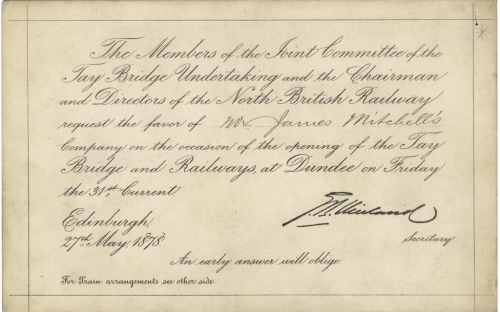 The Members of the Joint Committee of the
Tay Bridge Undertaking and the Chairman
and Directors of the North British Railway
request the favor of Mr James Mitchell's
Company on the occasion of the opening of the Tay
Bridge and Railways, at Dundee on Friday
the 31st Current.
Edinburgh,
27th May, 1878.
Secretary
An early answer will oblige.
For Train arrangements see other side.